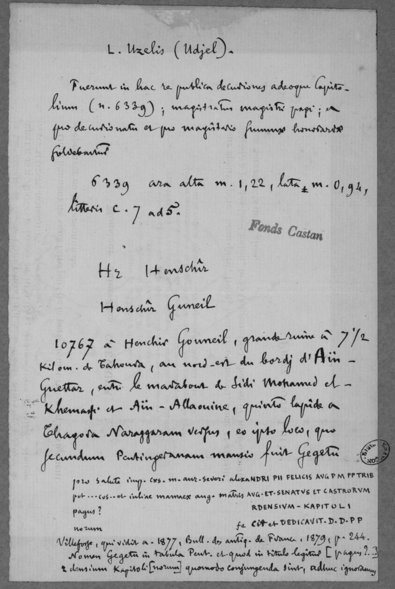 L. Uzelis (Udjel).
Fuerunt in hac re publica decuriones adeoque Capito-
lium (n. 6339); magistratus magistri pagi; a
pro decurionatu et pro magisterio summae honorariae
solvebantur
6339 ara alta m. 1,22, lata m. 0,94,
litteris c. 7 ad 5.
Fonds Castan
Hz Henschîr
Henschîr Guneil
10767 à Henchir Gouneil, grande ruine à 7 1/2
Kilom. de Tahoura, au nord-est du bordj d'Aïn-
Guettar, entre le marabout de Sidi Mohamed el-
Khemassi et Aïn-Allaouine, quinto lapide a
Thagora Naraggaram versus, eo ipso loco, quo
secundum Peutingeranam mansio fuit Gegetu
pro salute imp. caes. m. aur. severi alexandri PII FELICIS AVG P M PP TRIB
pot ---cos--et iuliae mamaeae aug. matris AVG·ET·SENATVS ET CASTRORVM
RDENSIVM-KAPITOLI
pagus?
norum
fe cit et DEDICAVIT·D·D·PP
Villefosse, qui vidit a. 1877, Bull. des antiq. de France, 1879, p. 244.
Nomen Gegetu in tabula Peut. et quod in titulo legitur [pagus?]
rdensium Kapitoli [norum] quomodo conjungenda sint, adhuc ignoramus